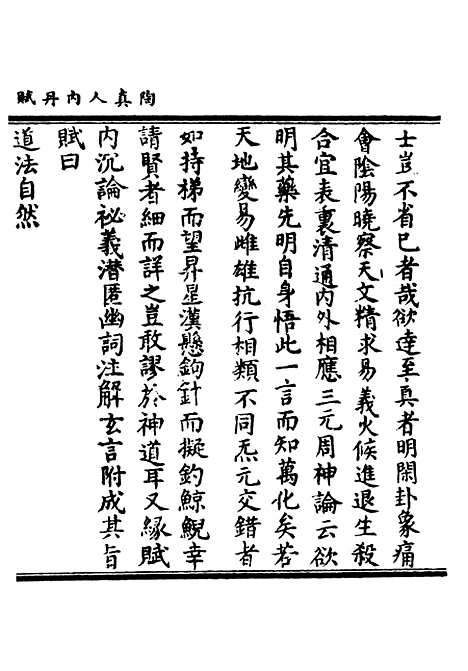 陶真人內丹賦
士豈不省已者哉欲達至真者明閑卦象痛
會陰陽曉察天文精求易義火候進退生殺
合宜表裏清通內外相應三元周神論云欲
明其藥先明自身悟此一言而知萬化矣若
天地變易雌雄抗行相類不同炁元交錯者
如持梯而望昇星漢懸鉤針而擬釣鯨鯢幸
請賢者細而詳之豈敢謬於神道耳又緣賦
內沉論祕義潛匿幽詞注解玄言附成其旨
賦曰
道法自然